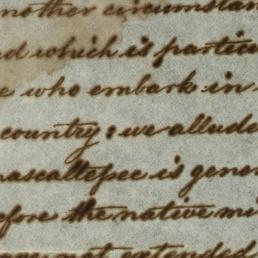 nother circumstan
d which is particu
e who embark in
country; we allude
ascaltepec is gener
efore the native mi
not extended